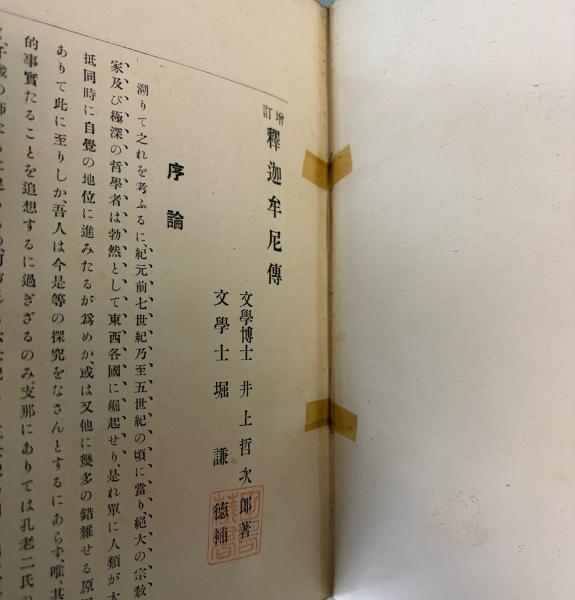 增訂 釋迦牟尼傳
文學博士 井上哲次郎著
文學士 堀謙德補
序論
溯りて之れを考ふるに、紀元前七世紀乃至五世紀の頃に當り、絕大の宗敎
家及び極深の哲學者は勃然として東西各國に崛起せり、是れ單に人類が大
抵同時に自覺の地位に進みたるが爲めか、或は又他に幾多の錯雜せる原因
ありて此に至りしか、吾人は今是等の探究をなさんとするにあらず、唯〻其
的事實たることを追想するに過ぎざるのみ、支那にありては孔老二氏の